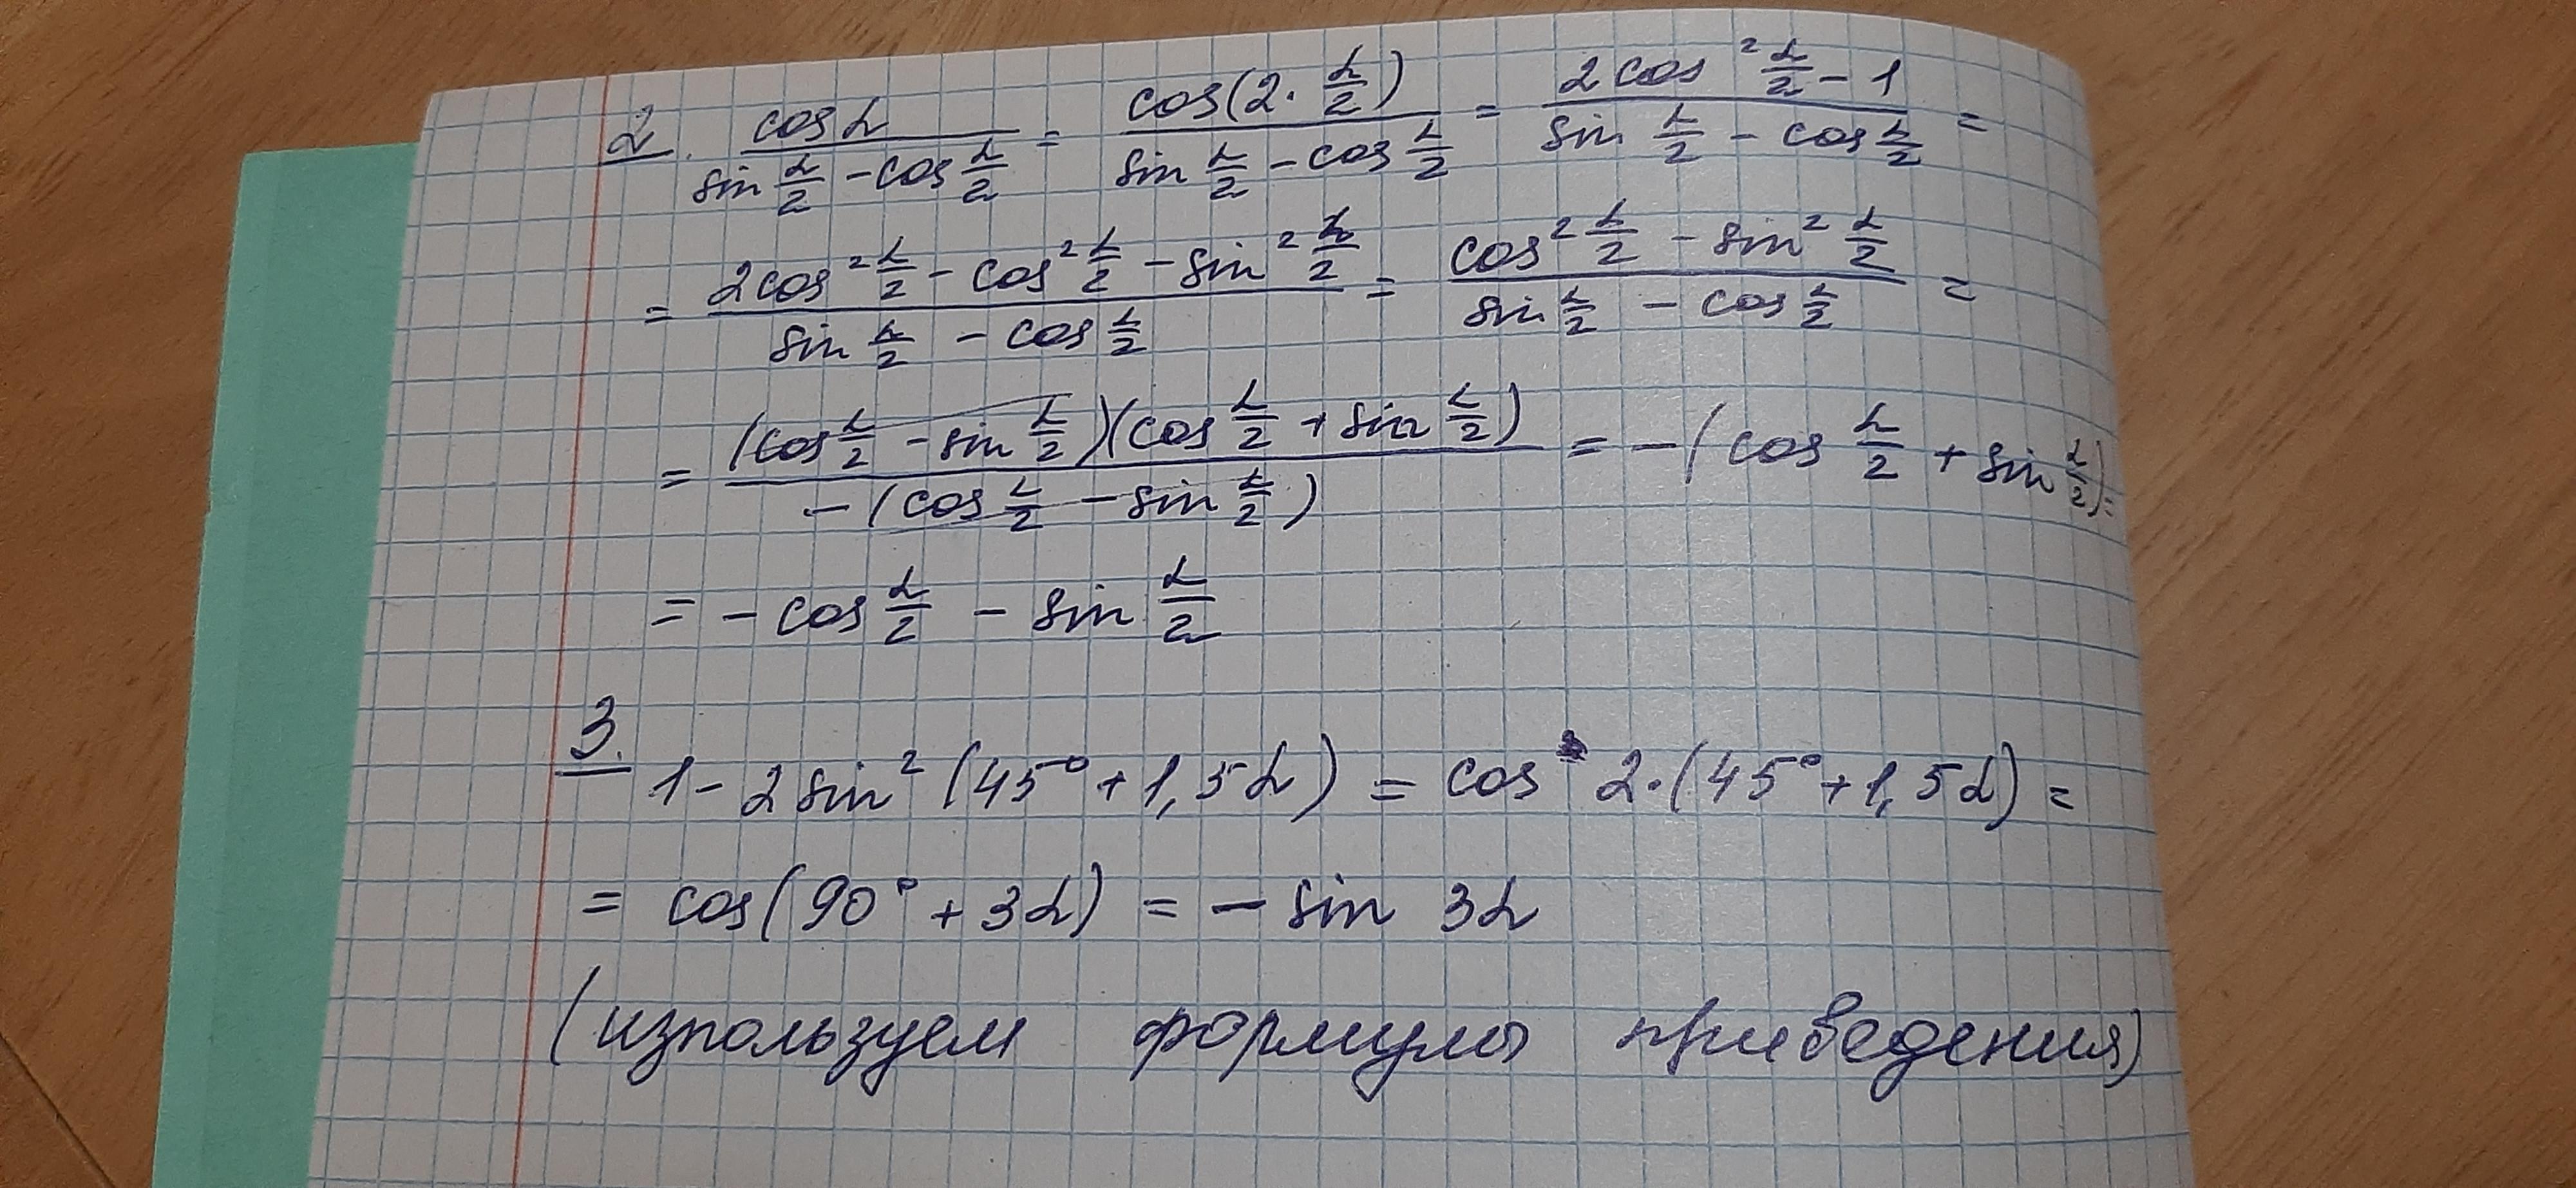 2. cos α / (sin α/2 - cos α/2) = cos(2 · α/2) / (sin α/2 - cos α/2) = (2 cos² α/2 - 1) / (sin α/2 - cos α/2) =
= (2cos² α/2 - cos² α/2 - sin² α/2) / (sin α/2 - cos α/2) = (cos² α/2 - sin² α/2) / (sin α/2 - cos α/2) =
= (cos α/2 - sin α/2)(cos α/2 + sin α/2) / -(cos α/2 - sin α/2) = -(cos α/2 + sin α/2) =
= - cos α/2 - sin α/2
3. 1 - 2 sin² (45° + 1,5α) = cos 2·(45° + 1,5α) =
= cos(90° + 3α) = - sin 3α
(изпользуем формулы приведения)